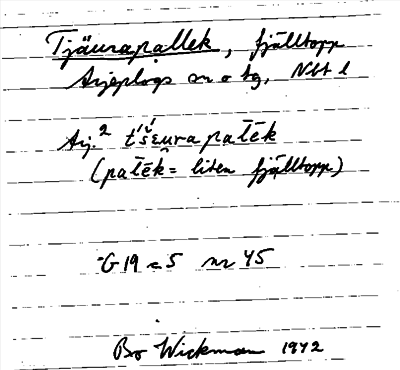 Tjäurapallek, fjälltopp
Arjeplogs sn o tg, Nbt l
Arj.² t́š́ɛu̯rapaĺēk
(paĺēk = liten fjälltopp)
G19 = 5 nr 45
Bo Wickman 1942